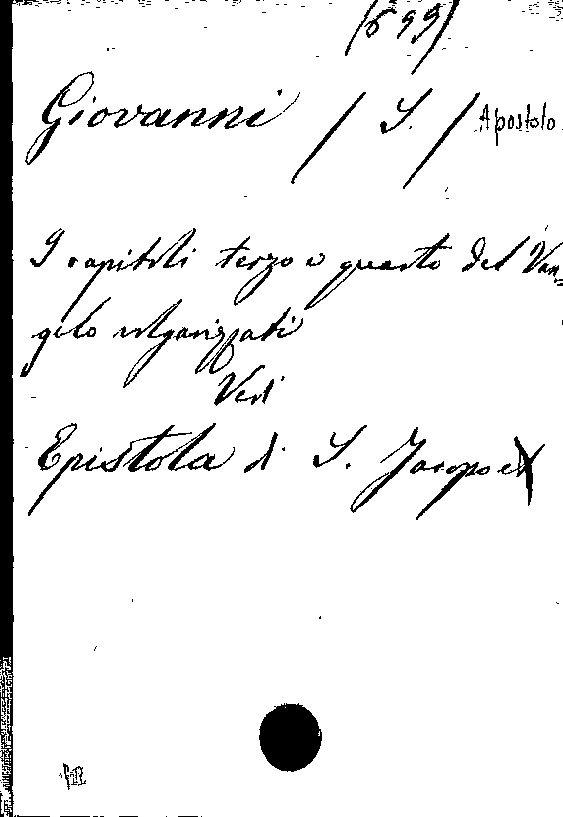 (699)
Giovanni / S. / Apostolo
I capitoli terzo e quarto del Van=
gelo volgarizzati
Vedi
Epistola di S. Jacopo